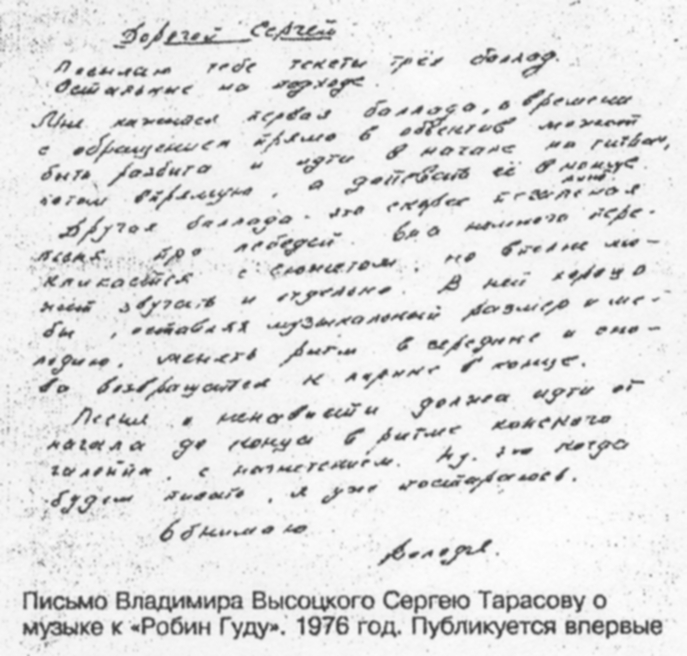 Дорогой Сергей
Посылаю тебе тексты трёх баллад.
Остальные на подходе.
Мне кажется первая баллада, о времени
с обращением прямо в объектив может
быть разбита и идти в начале на титрах,
потом впрямую, а допевать её в конце.
Другая баллада – это скорее печальная
песня про лебедей. Она немного пере-
кликается с сюжетом, но вполне мо-
жет звучать и отдельно. В ней хорошо
бы, оставляя музыкальный размер и ме-
лодию, менять ритм в середине и сно-
ва возвращаться к лирике в конце.
Песня о ненависти должна идти от
начала до конца в ритме конского
галоппа, с нагнетением. Ну, это когда
будем писать, я уже постараюсь.
Обнимаю
Володя.
Письмо Владимира Высоцкого Сергею Тарасову о
музыке к «Робин Гуду». 1976 год. Публикуется впервые